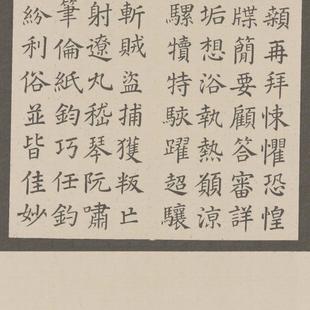 顙再拜悚懼恐惶
牒簡要顧答審詳
垢想浴執熱願涼
騾犢特駭躍超驤
斬賊盜捕獲叛亡
射遼丸嵇琴阮嘯
筆倫紙鈞巧任釣
紛利俗並皆佳妙